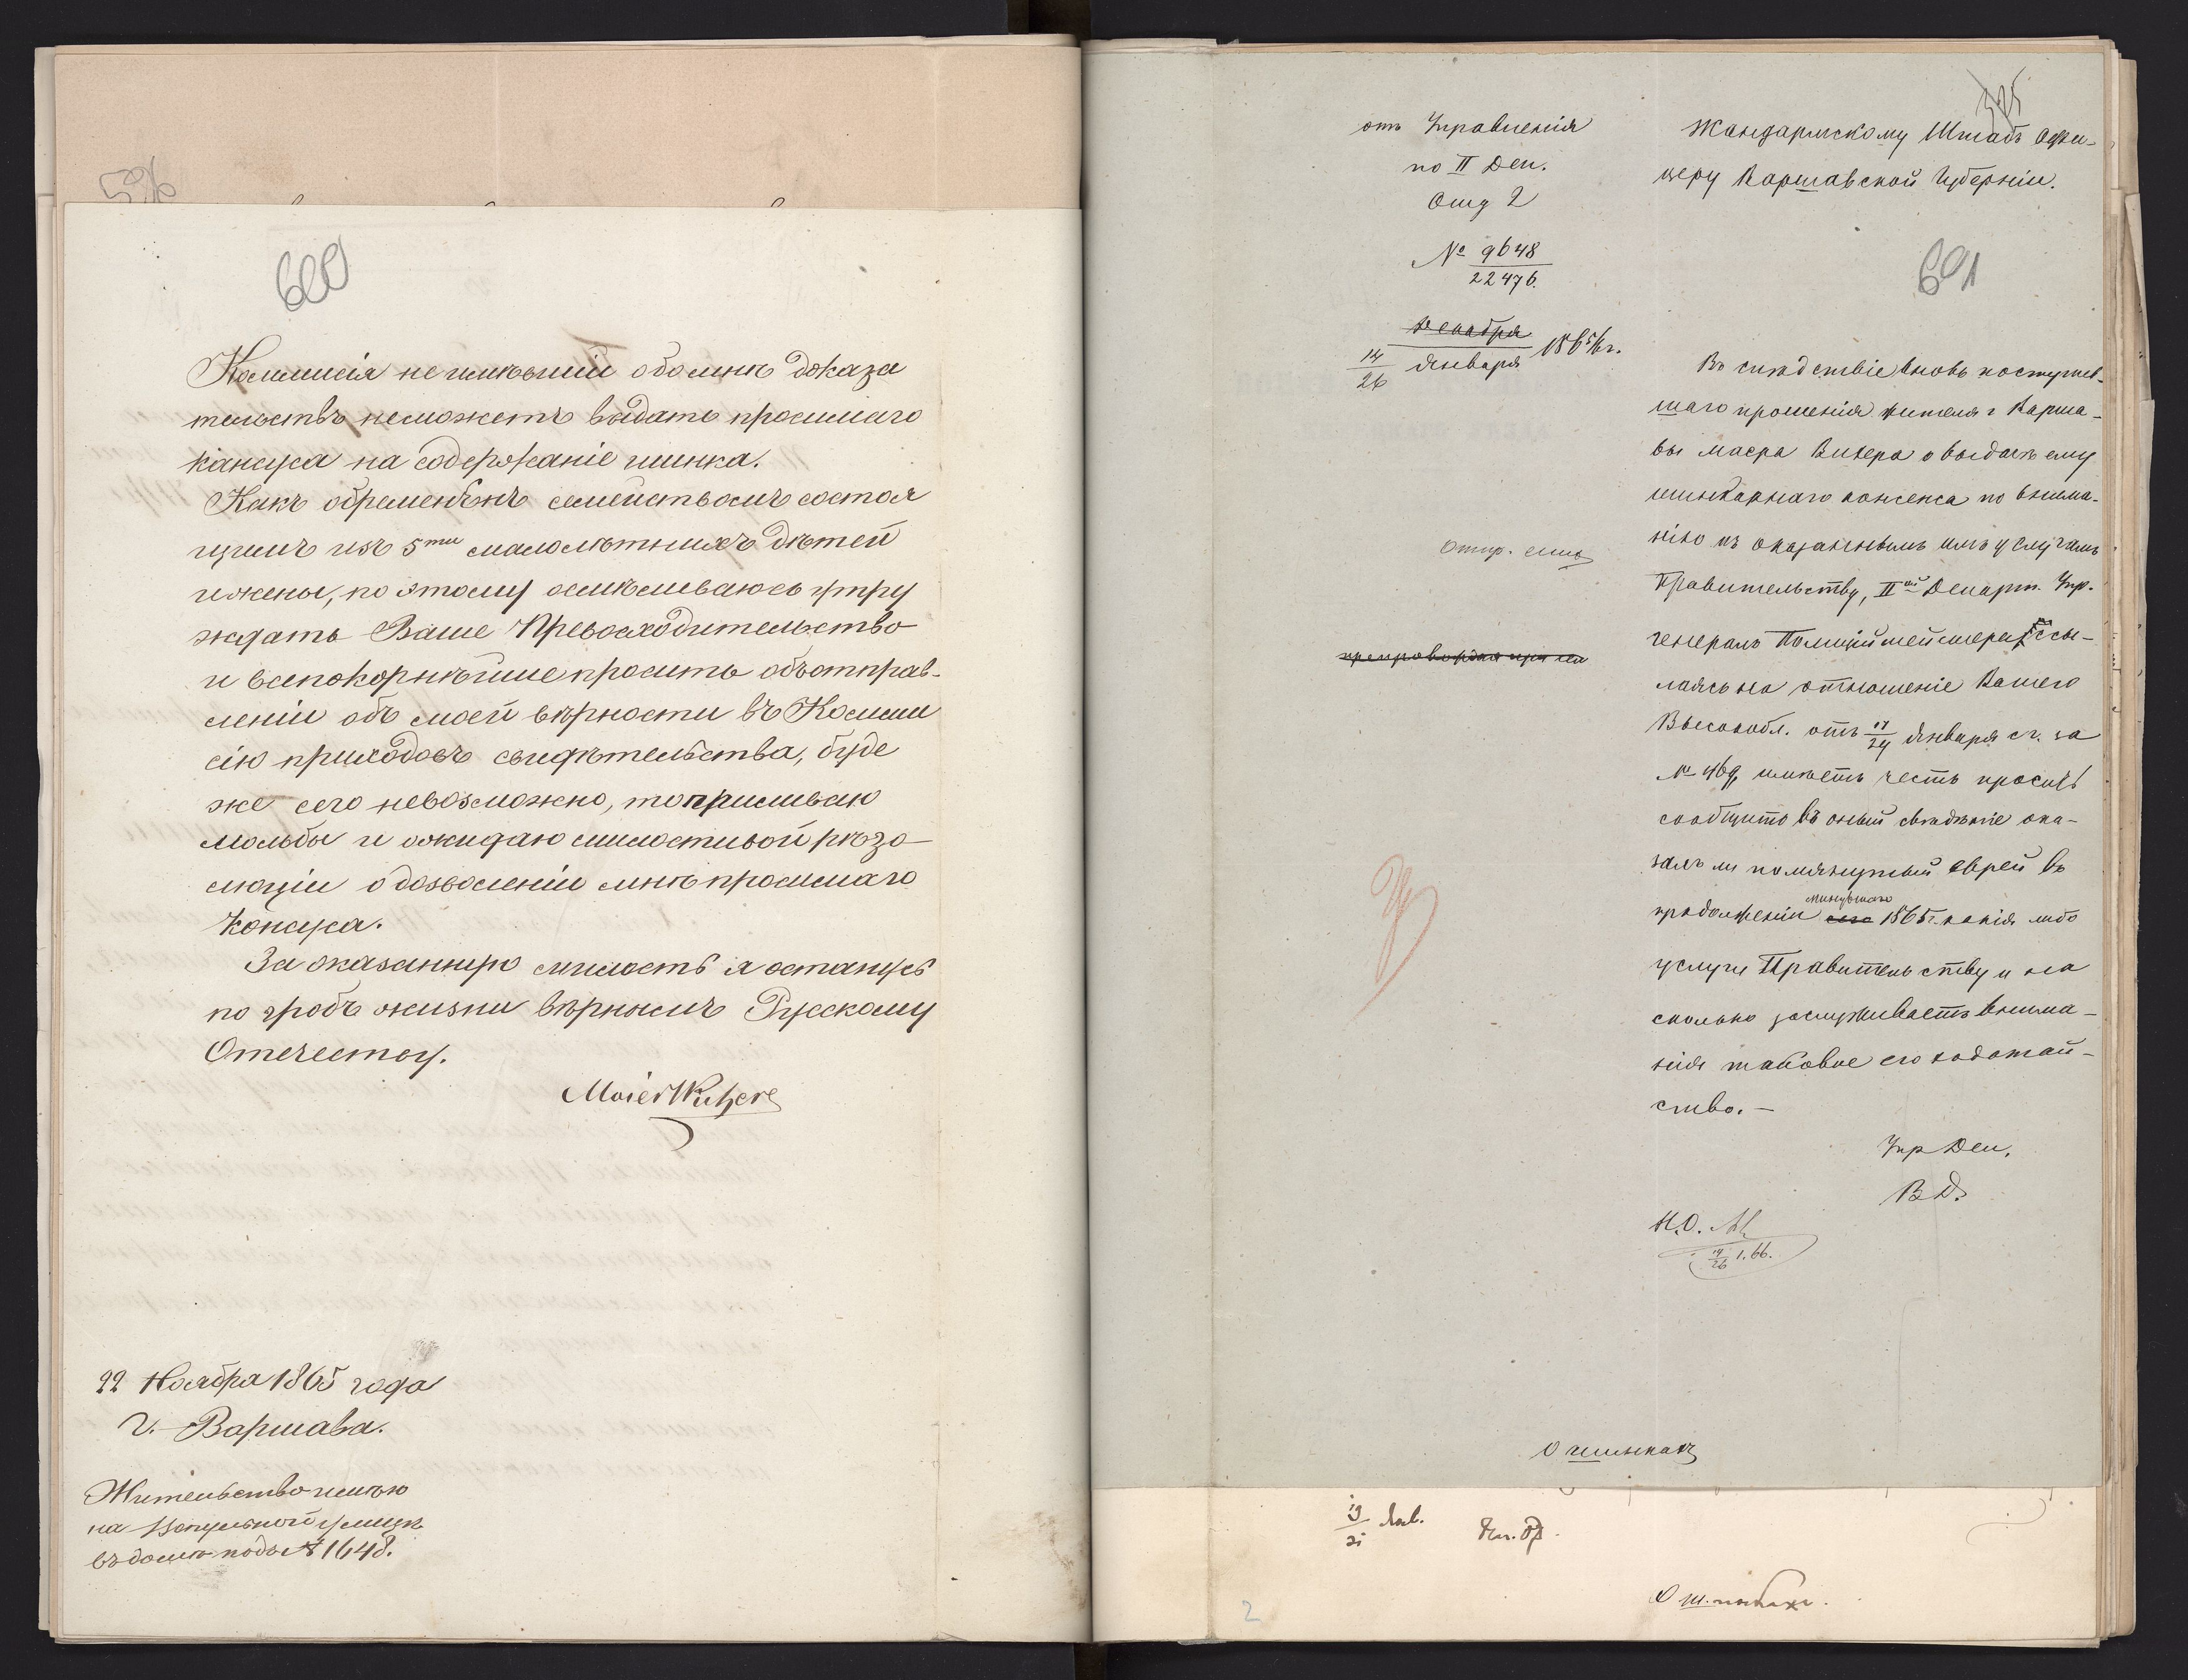 600
Коммисія неимѣвшій обомнѣ доказа
тельствъ неможетъ выдать просимаго
канцуса на содержаніе шинка.
Какъ обремененъ семействомъ состоя
щимъ изъ 5ти малолѣтнихъ дѣтей
ижены, по этому осмѣливаюсь утру
ждать Ваше Превосходительство
и всепокорнѣйше просить объотправ-
леніи объ моей вѣрности въ Комми
сію приходовъ свидѣтельства, буде
же сего невозможно, то
мольбы и ожидаю милостивой резо-
люціи о дозволеніи мнѣ просимаго
Концуса.
За оказанную милость я останусь
по гробъ жизни вѣрнымъ Русскому
Отечеству.
22 Ноября 1865 года
г. Варшава.
Жительство имѣю
на улицѣ
въ домѣ подъ № 1648.
отъ Управленія
по II Деп.
Отд 2
№ 9648
22476.
Декабря
14/26 Января 1865/6 г.
препровождая при сем
Жандармскому Штабъ Офи-
церу Варшавской Губерніи.
601
Въ слѣдствіе вновь поступив-
шаго прошенія жителя г Варша-
вы Маера Вигера о выдачѣ ему
шинкарнаго консенса по внима-
нію къ оказаннымъ имъ услугамъ
Правительству, IIой Департ. Упр.
Генералъ Полиціймейстера, ссы-
лаясь на отношеніе Вашего
Высокобл. отъ 17/29 Января с г. за
№ 469, имѣетъ честь просить
сообщить въ оный свѣдѣніе ока-
залъ ли помянутый еврей въ
продолженіи сего минувшаго 1865 г. какія либо
услуги Правительству и на
сколько заслуживаетъ внима-
нія таковое его ходатай-
ство. —
Упр Деп.
В Д.
Н.О.
14/26 1.66.
О шинкахъ
2